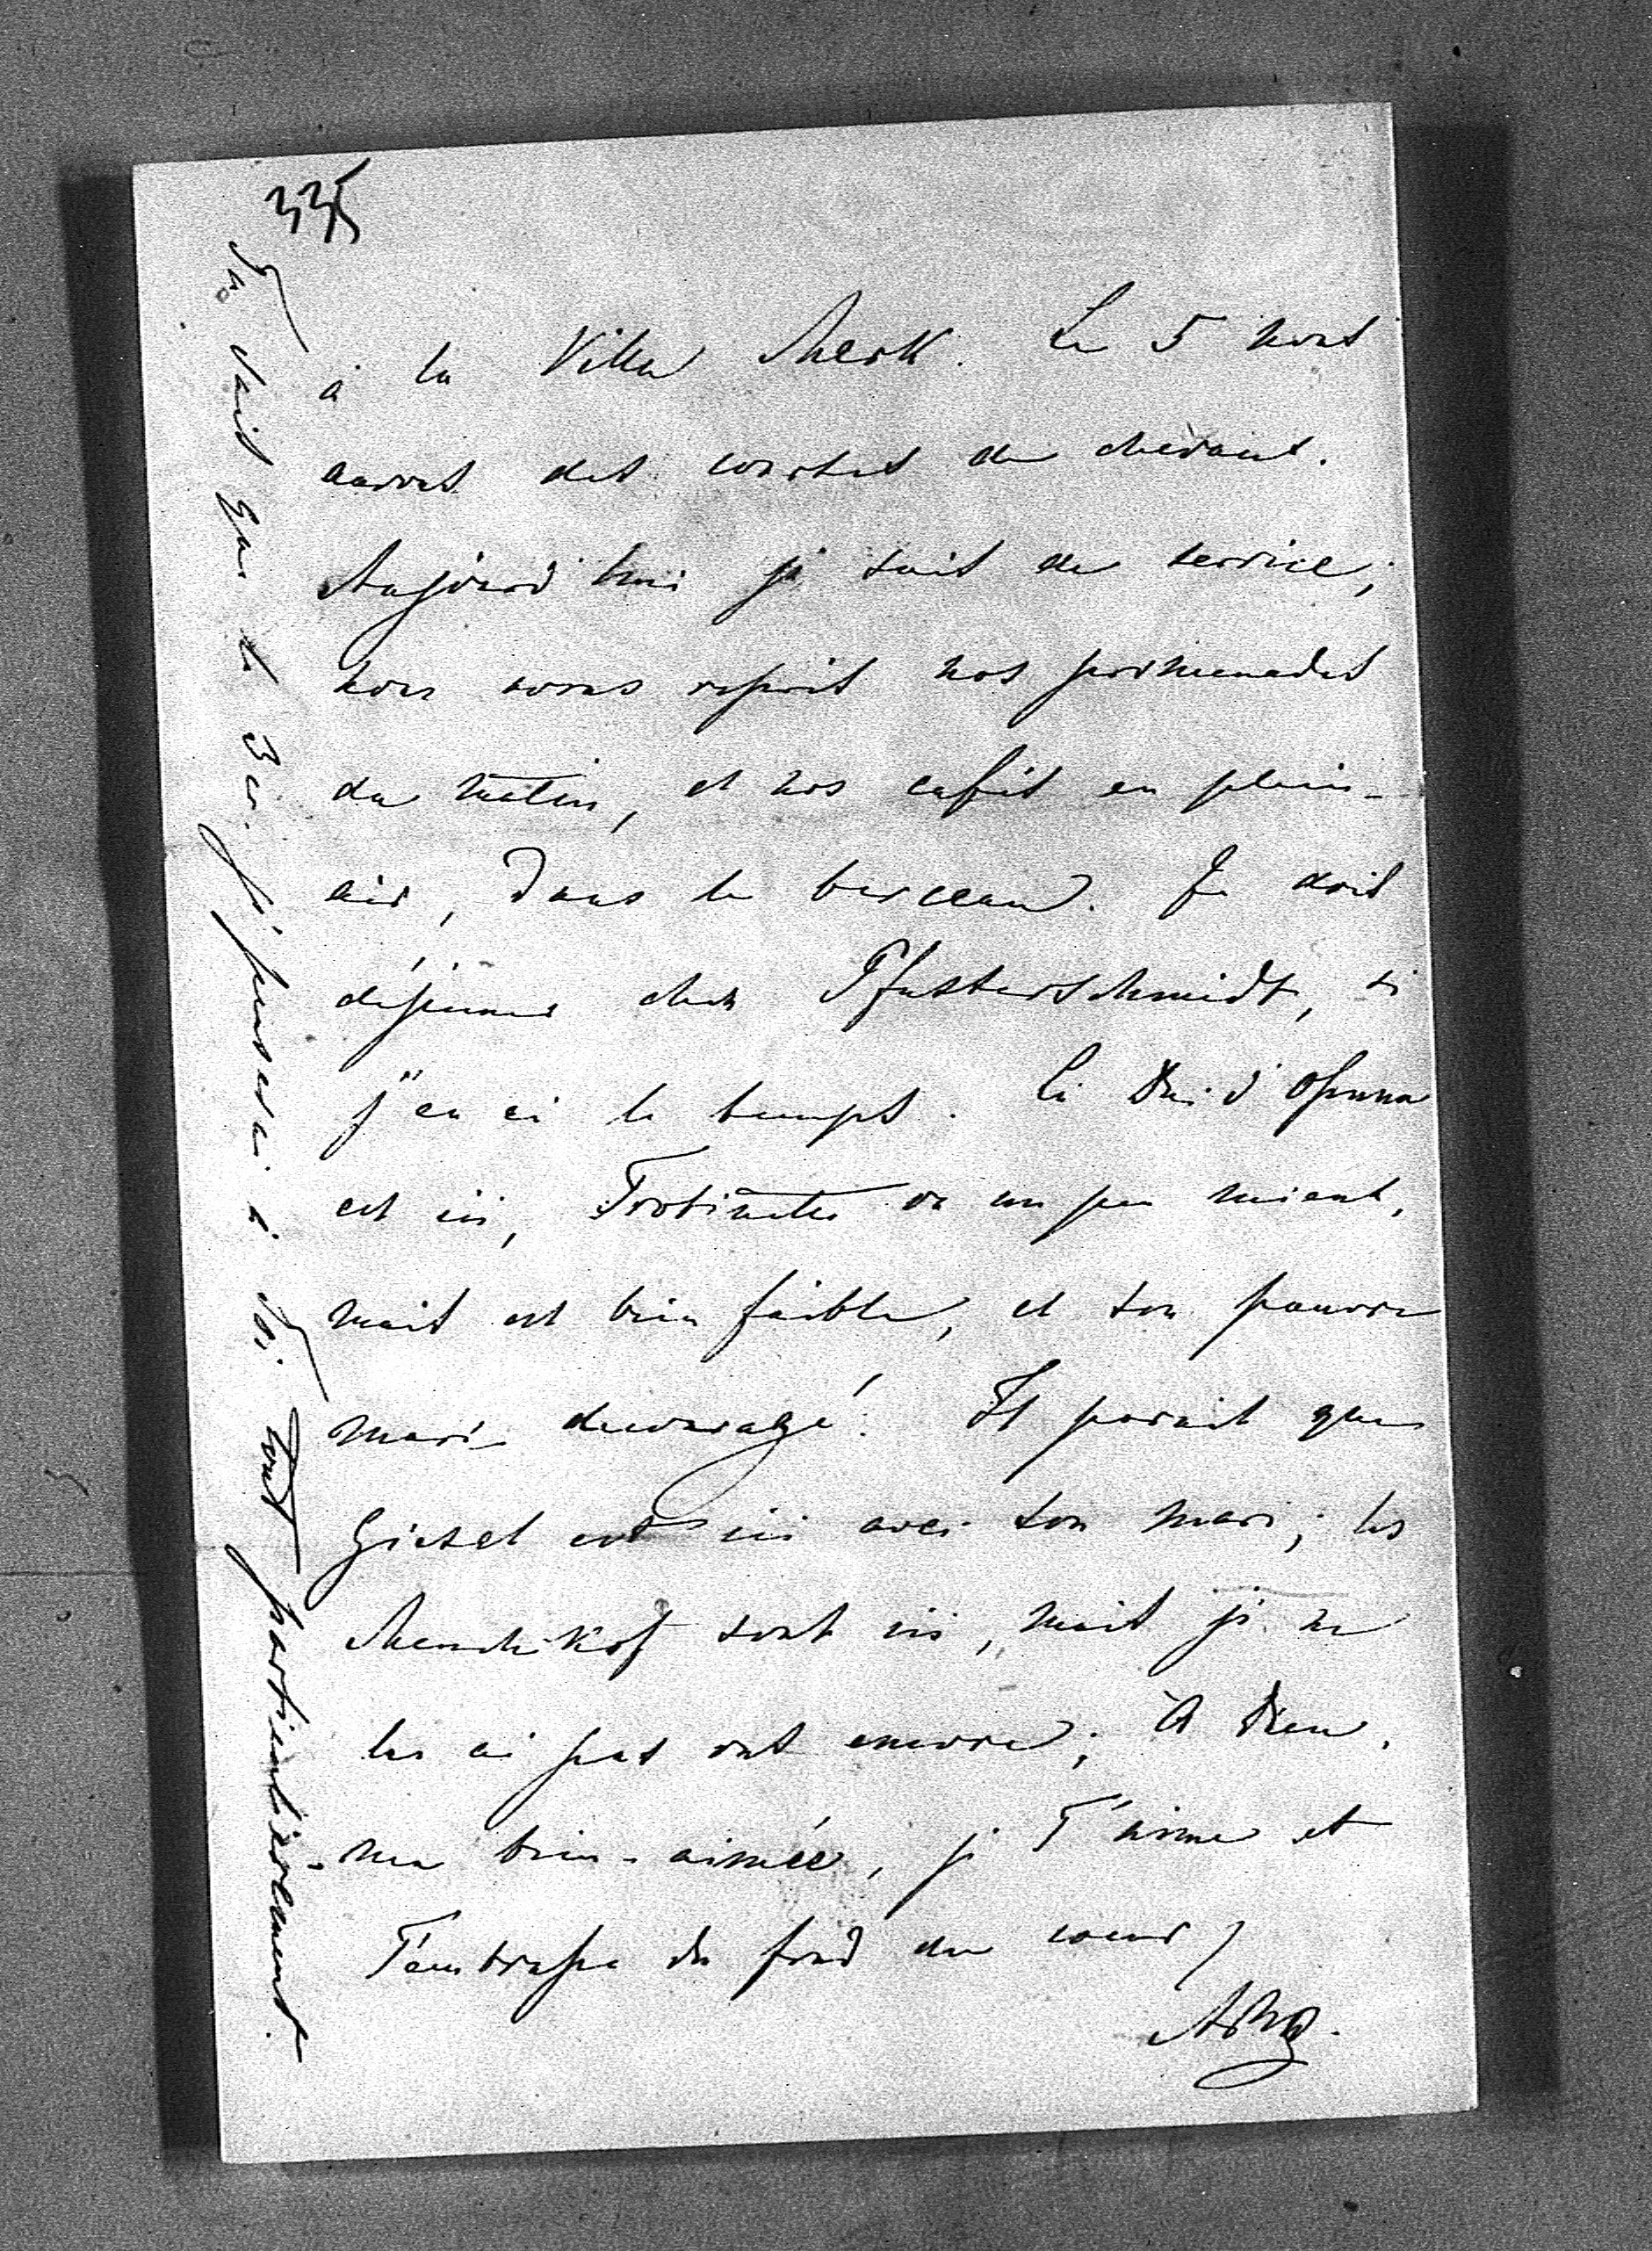 335
à la Villa Merk. Le 5 nous
aurons des courses de chevaux.
Aujourd'hui je suis de service;
nous avons repris nos promenades
du matin, et nos cafés en plein-
air, dans le berceau. Je dois
déjeuner chez Pfusterschmidt, si
j'en ai le temps. Le Duc d'Ossuna
est ici, va un peu mieux,
mais est bien faible, et son pauvre
mari decouragé! Il parait que
Gisel est ici avec son mari; les
Menchikof sont ici, mais je ne
les ai pas vus encore; A Dieu,
ma bien-aimée, je T'aime et
T'embrasse du fond du coeur
Tu sais que le 3 je penserai à Toi tout particulièrement.